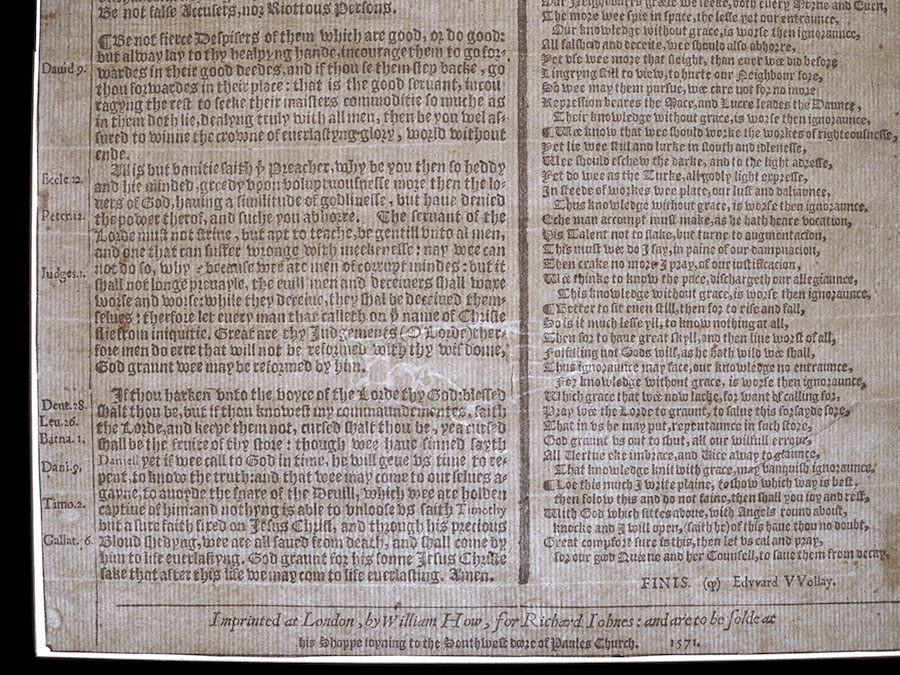 Be not false Accusers, nor Riottous Persons.
¶Be not fierce Despisers of them which are good, or do good:
but alway lay to thy healpyng hande, incourage them to go for-
Dauid 9.
wardes in their good deedes, and if thou se them step backe, go
thou forwardes in their place: that is the good seruant, incou
ragyng the rest to seeke their maisters commoditie so muche as
in them doth lie, dealyng truly with all men, then be you wel as-
sured to winne the crowne of euerlastyng glory, world without
ende.
All is but vanitie saith ẏ Preacher, why be you then so heddy
Eccle.12.
and hie minded, greedy vpon voluptuousnesse more then the lo-
uers of God, hauing a similitude of godlinesse, but haue denied
Peter.12.
the power therof, and suche you abhorre. The seruant of the
Lorde must not striue, but apt to teache, be gentill vnto al men,
and one that can suffer wronge with meekenesse: nay wee can
not do so, why? because wee are men of corrupt mindes: but it
Iudges.1.
shall not longe preuayle, the euill men and deceiuers shall waxe
worse and worse: while they deceiue, they shal be deceiued them-
selues: therfore let euery man that calleth on ẏ name of Christe
flie from iniquitie. Great are thy Judgements (O Lorde) ther-
fore men do erre that will not be reformed with thy wisdome,
God graunt wee may be reformed by him.
If thou harken vnto the voyce of the Lorde thy God: blessed
Deut.28.
shalt thou be, but if thou knowest my commaundementes, saith
Leu.26.
the Lorde, and keepe them not, cursed shalt thou be, yea cursed
Barua. 1.
shall be the fruite of thy store: though wee haue sinned sayth
Daniell yet if wee call to God in time, he will geue vs time to re-
Dani.9.
pent, to know the truth: and that wee may come to our selues a-
gayne, to auoyde the snare of the Deuill, which wee are holden
Timo.2.
captiue of him: and nothyng is able to vnloose vs saith Timothy
but a sure faith fixed on Jesus Christ, and through his precious
Gallat. 6.
Bloud shedyng, wee are all saued from death, and shall come by
him to life euerlastyng. God graunt for his sonne Jesus Christe
sake that after this life we may com to life euerlasting. Amen.
Our Neighbours greete we seeke, both euery Morne and Euen,
The more wee spie in space, the lesse yet our entraunce,
Our knowledge without grace, is worse then ignoraunce,
All falshod and deceite, wee should also abhorre,
Yet vse wee more that sleight, than euer wee did before
Lingryng still to view, to hurte our Neighbour sore,
So wee may them pursue, wee care not for no more
Repression beares the Mace, and Lucre leades the Daunce,
Their knowledge without grace, is worse then ignoraunce.
¶Wee know that wee should worke the workes of righteousnesse,
Yet lie wee still and lurke in slouth and idlenesse,
Wee should eschew the darke, and to the light adresse,
Yet do wee as the Turke, all godly light expresse,
In steede of workes wee place, our lust and daliaunce,
Thus knowledge without grace, is worse then ignoraunce.
Eche man accompt must make, as he hath heare vocation,
His Talent not to slake, but turne to augmentacion,
This must wee do I say, in paine of our dampnacion,
Then crake no more I pray, of our iustificacion,
Wee thinke to know the pace, dischargeth our allegiaunce,
This knowledge without grace, is worse then ignoraunce,
¶Better to sit euen still, then for to rise and fall,
So is it much lesse yll, to know nothing at all,
Then for to haue great skyll, and then line worst of all,
Fulfilling not Gods will, as he hath wild wee shall,
Thus ignoraunce may face, our knowledge no entraunce,
For knowledge without grace, is worse then ignoraunce,
Which grace that wee now lacke, for want of calling for,
Pray wee the Lorde to graunt, to salue this forsayde sore,
That in vs he may put, repentaunce in such store,
God graunt vs out to shut, all our wilfull erroure,
All Vertue eke imbrace, and Vice away to glaunce,
That knowledge knit with grace, may vanquish ignoraunce.
¶Loe this much I write plaine, to show which way is best,
then folow this and do not faine, then shall you ioy and rest,
With God which sittes aboue, with Angels round about,
knocke and I will open, (saith he) of this haue thou no doubt,
Great comfort sure is this, then let vs cal and pray,
for our god Queene and her Counsell, to saue them from decay.
FINIS. (q) Edvvard VVollay.
Imprinted at London, by William How, for Richard Iohnes: and are to be solde at
his Shoppe ioyning to the Southwest dore of Paules Church. 1571.